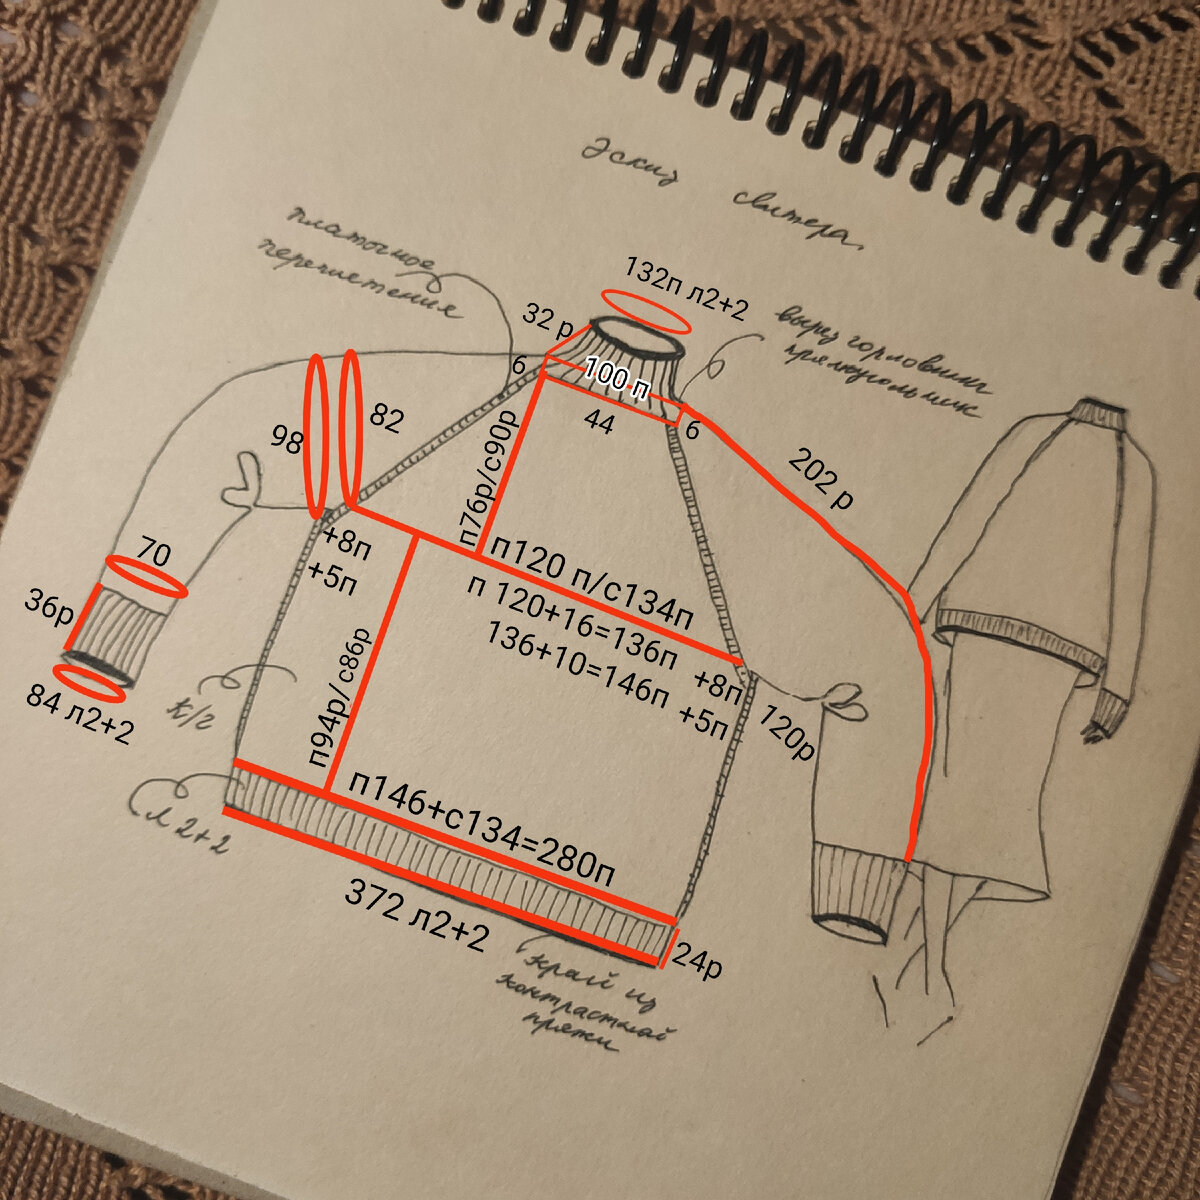 Эскиз свитера
платочное
переплетение
132п л2+2
вырез горловины
прямоугольник
32 р
6
100 п
44
6
82
98
202 р
п76р/с90р
+8п
+5п
п120 п/с134п
п 120+16=136п
136+10=146п
+8п
+5п
120р
70
36р
84 л2+2
к/г
п94р/с86р
л 2+2
п146+с134=280п
372 л2+2
24р
край из
контрастной
пряжи